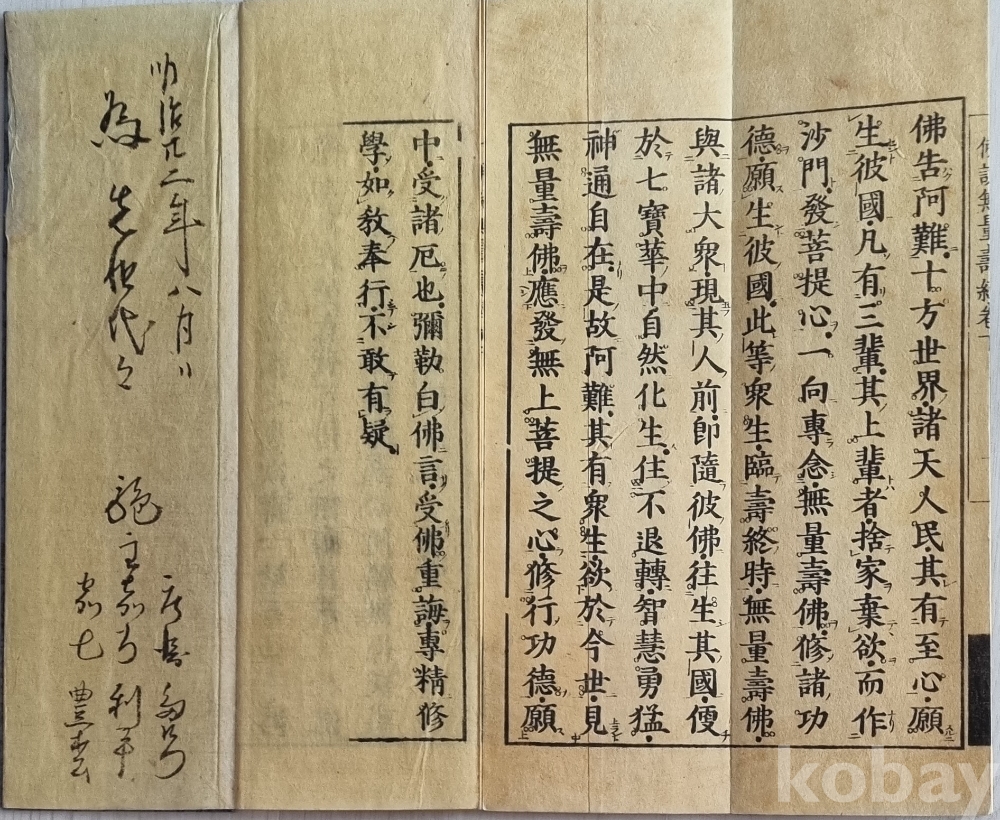 佛說無量壽經卷下
佛告阿難十方世界諸天人民其有至心願
生彼國凡有三輩其上輩者捨家棄欲而作
沙門發菩提心一向專念無量壽佛修諸功
德願生彼國此等衆生臨壽終時無量壽佛
與諸大衆現其人前即隨彼佛往生其國便
於七寶華中自然化生住不退轉智慧勇猛
神通自在是故阿難其有衆生欲於今世見
無量壽佛應發無上菩提之心修行功德願
中受諸厄也彌勒白佛言受佛重誨專精修
學如教奉行不敢有疑
利平
豊吉
為 先祖代々
明治廿二年八月
kobay